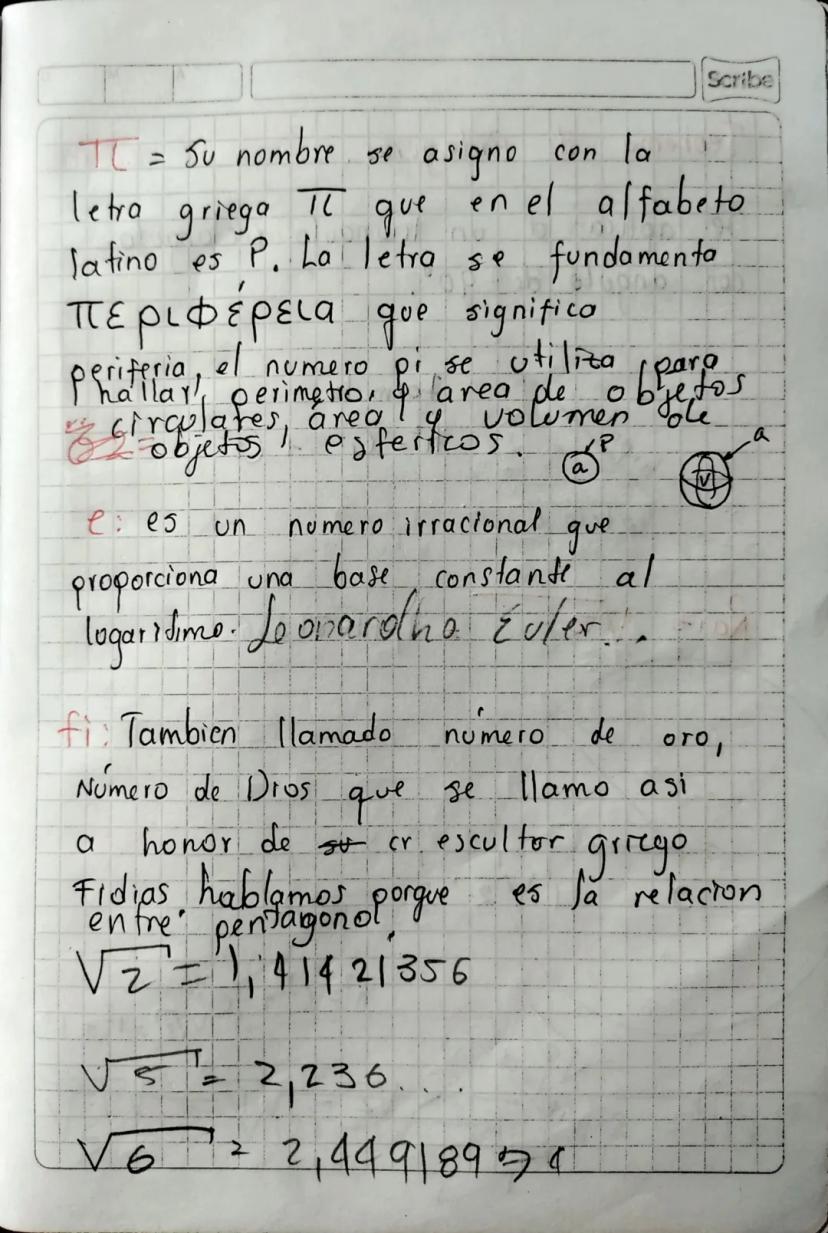 Scribe
π = Su nombre se asigno con la
letra griega π que en el alfabeto
latino es P. La letra se fundamenta
περιφέρεια que significa
periferia, el numero pi se utiliza para
hallar perimetro, y area de objetos
circulares, área y volumen de
objetos esfericos.
P
a
a
V
e: es un numero irracional que
proporciona una base constante al
logaridimo. Leonardha Euler...
fi: Tambien llamado número de oro,
Número de Dios que se llamo asi
a honor de escultor griego
Fidias hablamos porque es la relacion
entre pentagono.
√2 = 1,41421356
√5 = 2,236...
√6 = 2,44918974